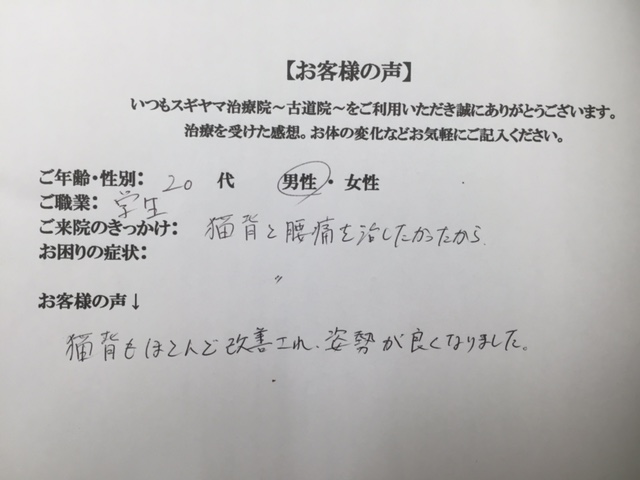 【お客様の声】
いつもスギヤマ治療院～古道院～をご利用いただき誠にありがとうございます。
治療を受けた感想。お体の変化などお気軽にご記入ください。
ご年齢・性別: 20 代 男性・女性
ご職業: 学生
ご来院のきっかけ: 猫背と腰痛を治したかったから
お困りの症状:
〃
お客様の声↓
猫背もほとんど改善され、姿勢が良くなりました。